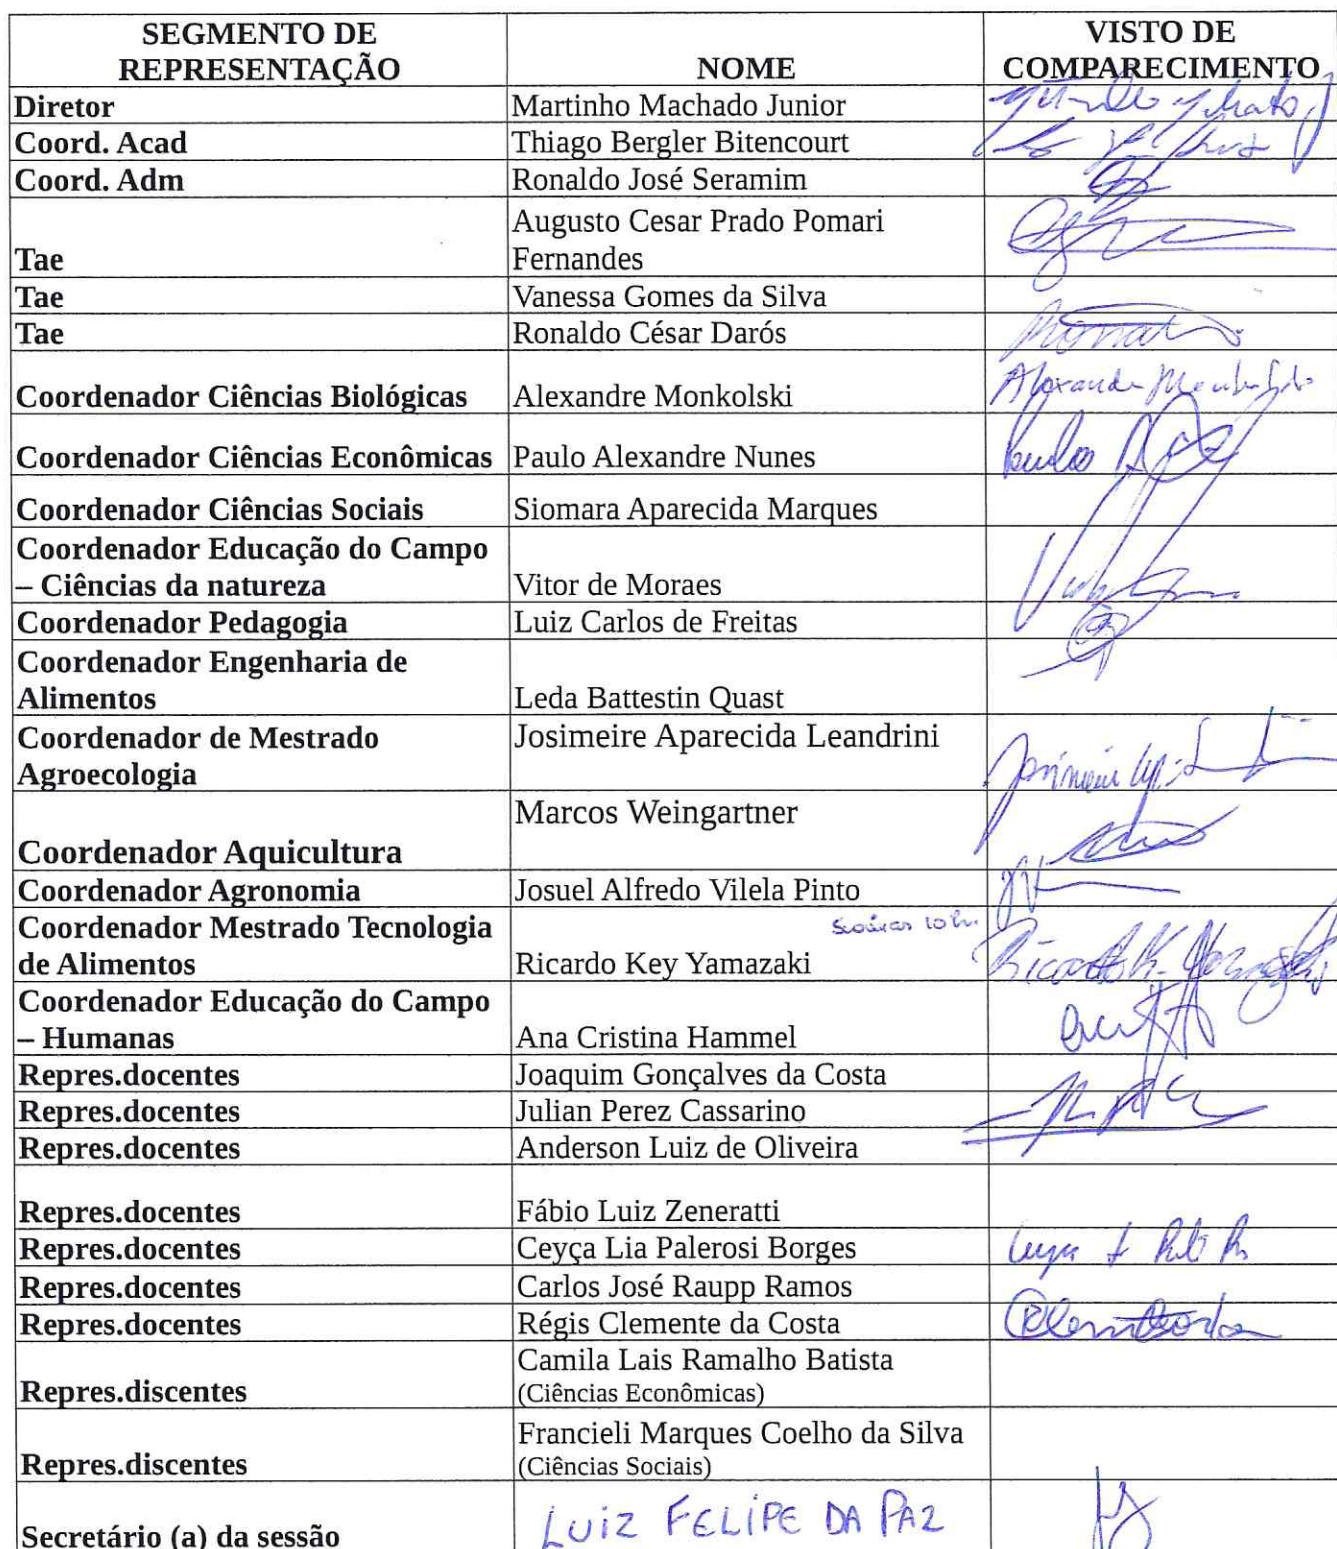 SEGMENTO DE
REPRESENTAÇÃO
NOME
VISTO DE
COMPARECIMENTO
Diretor Martinho Machado Junior
Coord. Acad Thiago Bergler Bitencourt
Coord. Adm Ronaldo José Seramim
Augusto Cesar Prado Pomari
Tae Fernandes
Tae Vanessa Gomes da Silva
Tae Ronaldo César Darós
Coordenador Ciências Biológicas Alexandre Monkolski
Coordenador Ciências Econômicas Paulo Alexandre Nunes
Paulo
Coordenador Ciências Sociais Siomara Aparecida Marques
Coordenador Educação do Campo
– Ciências da natureza Vitor de Moraes
Coordenador Pedagogia Luiz Carlos de Freitas
Coordenador Engenharia de
Alimentos Leda Battestin Quast
Coordenador de Mestrado Josimeire Aparecida Leandrini
Agroecologia
Marcos Weingartner
Coordenador Aquicultura
Coordenador Agronomia Josuel Alfredo Vilela Pinto
Coordenador Mestrado Tecnologia
de Alimentos Ricardo Key Yamazaki
Ricardo K. Yamazaki
Coordenador Educação do Campo
– Humanas Ana Cristina Hammel
Repres.docentes Joaquim Gonçalves da Costa
Repres.docentes Julian Perez Cassarino
Repres.docentes Anderson Luiz de Oliveira
Repres.docentes Fábio Luiz Zeneratti
Repres.docentes Ceyça Lia Palerosi Borges
Repres.docentes Carlos José Raupp Ramos
Repres.docentes Régis Clemente da Costa
Camila Lais Ramalho Batista
Repres.discentes (Ciências Econômicas)
Francieli Marques Coelho da Silva
Repres.discentes (Ciências Sociais)
Secretário (a) da sessão LUIZ FELIPE DA PAZ